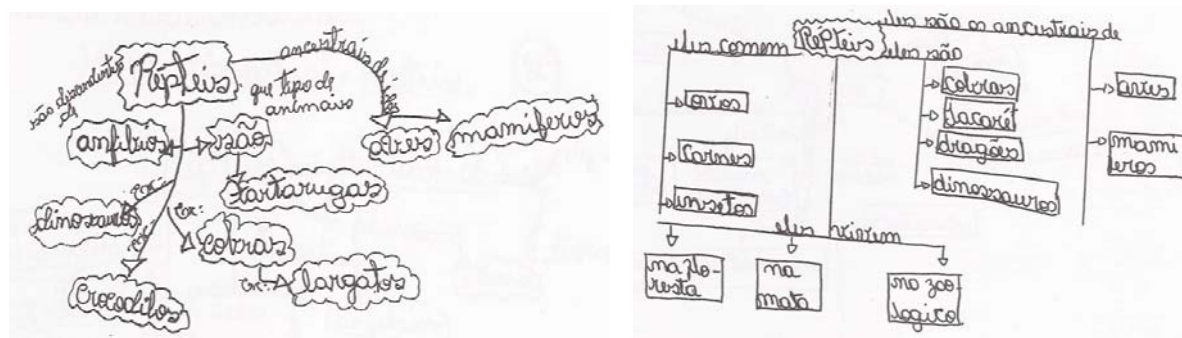 Répteis
são descendentes
de
que tipo de
animais
ancestrais de
anfíbios
são
aves
mamíferos
tartarugas
ex:
dinossauros
ex:
ex:
cobras
ex:
largatos
Crocodilos
eles são os ancestrais de
eles comem
Répteis
eles são
ovos
carnes
insetos
cobras
Jacaré
dragões
dinossauros
aves
mami
feros
eles vivem
na flo-
resta
na
mata
no zoo-
logico